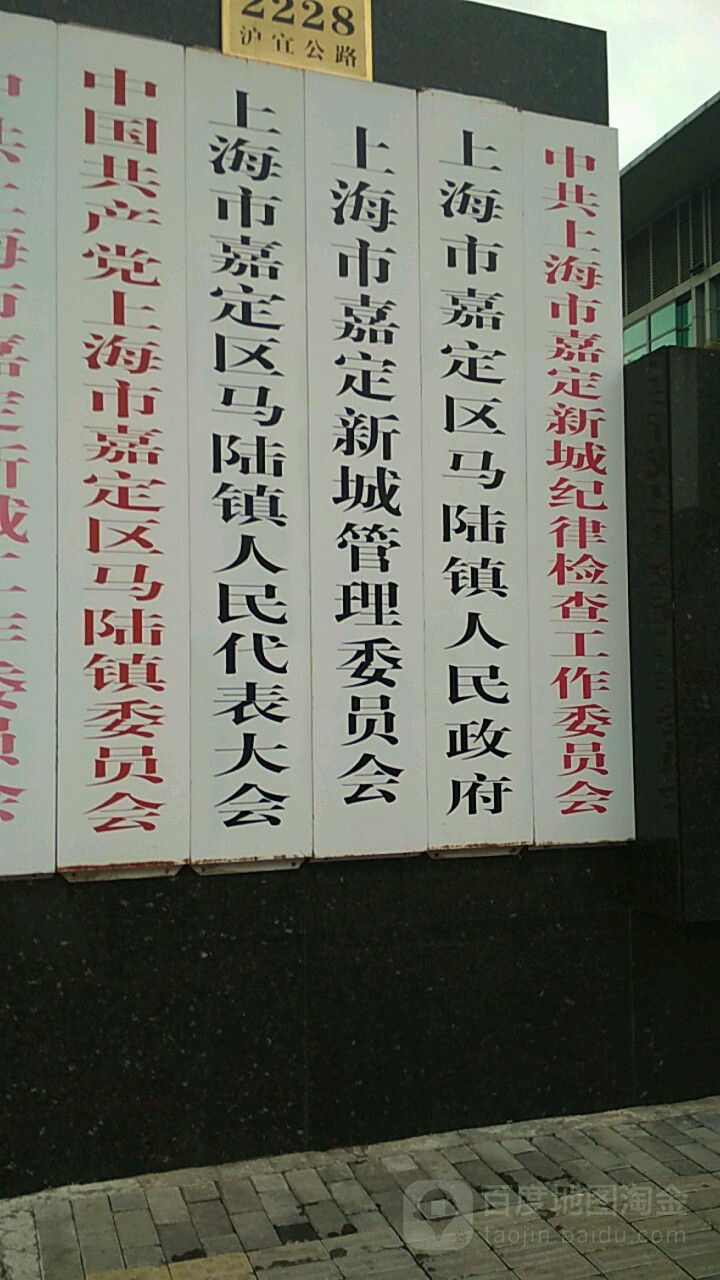 2228
沪宜公路
中共上海市嘉定新城工作委员会
中国共产党上海市嘉定区马陆镇委员会
上海市嘉定区马陆镇人民代表大会
上海市嘉定新城管理委员会
上海市嘉定区马陆镇人民政府
中共上海市嘉定新城纪律检查工作委员会
百度地图淘金
taojin.baidu.com